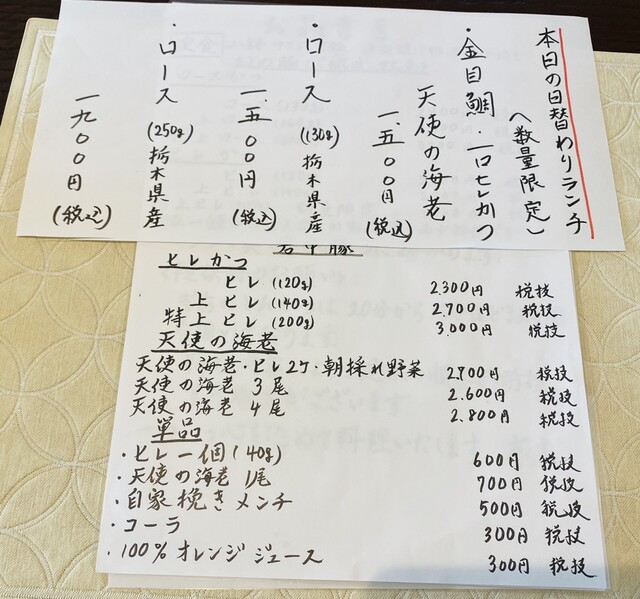 本日の日替わりランチ
(数量限定)
・金目鯛・一口ヒレかつ
天使の海老
一、五〇〇円(税込)
・ロース(130g)栃木県産
一、五〇〇円(税込)
・ロース(250g)栃木県産
一九〇〇円(税込)
岩中豚
ヒレかつ
ヒレ(120g) 2.300円 税抜
上ヒレ(140g) 2.700円 税抜
特上ヒレ(200g) 3.000円 税抜
天使の海老
天使の海老・ヒレ2ケ・朝採れ野菜 2.700円 税抜
天使の海老 3尾 2.600円 税抜
天使の海老 4尾 2.800円 税抜
単品
・ヒレ一個(40g) 600円 税抜
・天使の海老 1尾 700円 税抜
・自家挽きメンチ 500円 税抜
・コーラ 300円 税抜
・100%オレンジジュース 300円 税抜